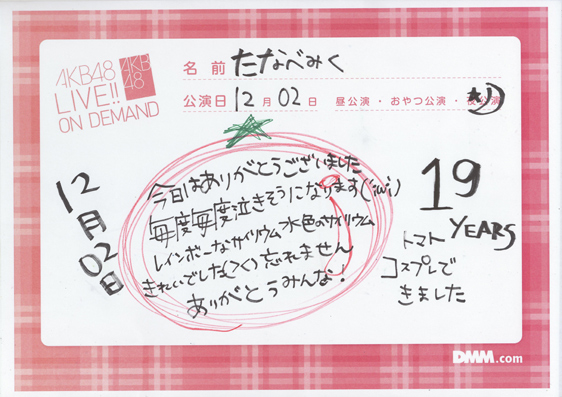 AKB48
LIVE!!
ON DEMAND
AKB
48
名前 たなべみく
公演日 12月02日 昼公演・おやつ公演・夜公演
12月02日
今日はありがとうございました
毎度毎度泣きそうになります(;ω;)
レインボーなサイリウム水色のサイリウム
きれいでした(つく)忘れません
ありがとうみんな!
19
YEARS
トマト
コスプレで
きました
DMM.com